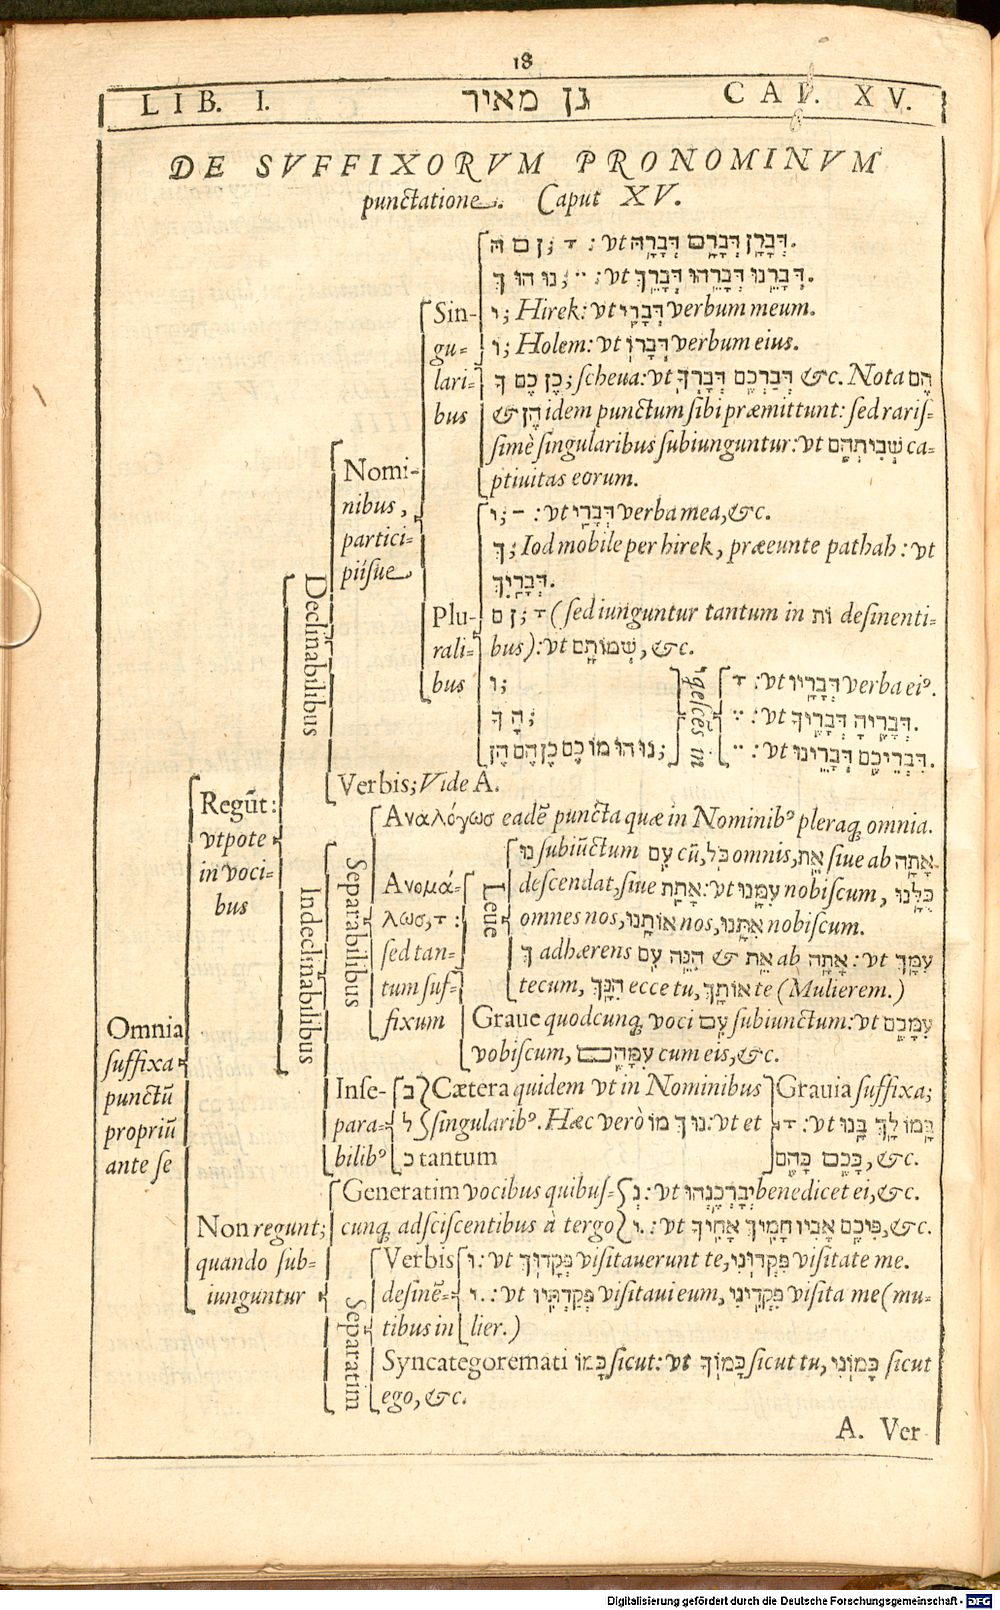 18
LIB. I. גן מאיר CAP. XV.
DE SVFFIXORVM PRONOMINVM
punctatione. Caput XV.
Omnia
suffixa
punctū
propriū
ante se
Regūt:
vtpote
in voci-
bus
Declinabilibus
Nomi-
nibus,
partici-
piisue
Sin-
gu-
lari-
bus
ן ם הּ; ָ : vt דְּבָרָן דְּבָרָם דְּבָרָהּ.
נוּ הוּ ךְ; ֵ : vt דְּבָרֵנוּ דְּבָרֵהוּ דְּבָרֵךְ.
י; Hirek: vt דְּבָרִי verbum meum.
ו; Holem: vt דְּבָרוֹ verbum eius.
כֶן כֶם ךָ; scheua: vt דְּבַרְכֶם דְּבָרְךָ &c. Nota הֶם
& הֶן idem punctum sibi præmittunt: sed raris-
simè singularibus subiunguntur: vt שְׁבִיתְהֶם ca-
ptiuitas eorum.
Plu-
rali-
bus
י; ַ : vt דְּבָרַי verba mea, &c.
ךְ; Iod mobile per hirek, præeunte pathah: vt
דְּבָרַיִךְ.
ן ם; ָ (sed iunguntur tantum in וֹת desinenti-
bus): vt שְׁמוֹתָם, &c.
ו;
הָ ךָ;
נוּ הוּ מוֹ כֶם כֶן הֶם הֶן;
ָ : vt דְּבָרָיו verba ei⁹.
ֶ : vt דְּבָרֶיהָ דְּבָרֶיךָ.
ֵ : vt דִּבְרֵיכֶם דְּבָרֵינוּ.
Verbis; Vide A.
Indeclinabilibus
Separabilibus
Αναλόγωσ eadē puncta quæ in Nominib⁹ pleraq; omnia.
Ανομά-
λωσ, ָ :
sed tan-
tum suf-
fixum
Leue
נוּ subiūctum עִם cū, כֹּל omnis, אֵת siue ab אָתָה
descendat, siue אָתָת: vt עִמָּנוּ nobiscum, כֻּלָּנוּ
omnes nos, אוֹתָנוּ nos, אִתָּנוּ nobiscum.
ךְ adhærens עִם הִנֵּה & אֵת ab אָתָה: vt עִמָּךְ
tecum, הִנָּךְ ecce tu, אוֹתָךְ te (Mulierem.)
Graue quodcunq; voci עִם subiunctum: vt עִמָּכֶם
vobiscum, עִמָּהֶם cum eis, &c.
Inse-
para-
bilib⁹
ב
ל
כ tantum
Cætera quidem vt in Nominibus
singularib⁹. Hæc verò נוּ ךְ מוֹ: vt et
Grauia suffixa;
ָ : vt בָּמוֹ לָךְ בָּנוּ
כָּכֶם כָּהֶם, &c.
Non regunt;
quando sub-
iunguntur
Generatim vocibus quibus-
cunq; adsciscentibus à tergo
נְ: vt יְבָרְכֶנְהוּ benedicet ei, &c.
י.: vt פִּיכֶם אָבִיו חָמִיךְ אָחִיךָ, &c.
Separatim
Verbis
desinē-
tibus in
וּ: vt פְּקָדוּךָ visitauerunt te, פִּקְדוּנִי visitate me.
י.: vt פְּקַדְתִּיו visitaui eum, פִּקְדִינִי visita me (mu-
lier.)
Syncategoremati כְּמוֹ sicut: vt כָּמוֹךָ sicut tu, כָּמוֹנִי sicut
ego, &c.
A. Ver
Digitalisierung gefördert durch die Deutsche Forschungsgemeinschaft - DFG